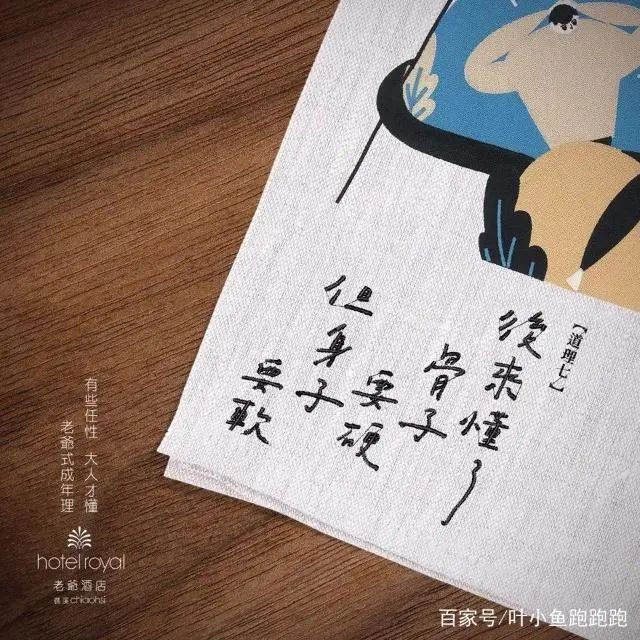 【道理七】
後來懂了
骨子
要硬
但身子
要軟
有些任性 大人才懂
老爺式成年理
hotel royal
老爺酒店
礁溪chiaohsi
百家号/叶小鱼跑跑跑